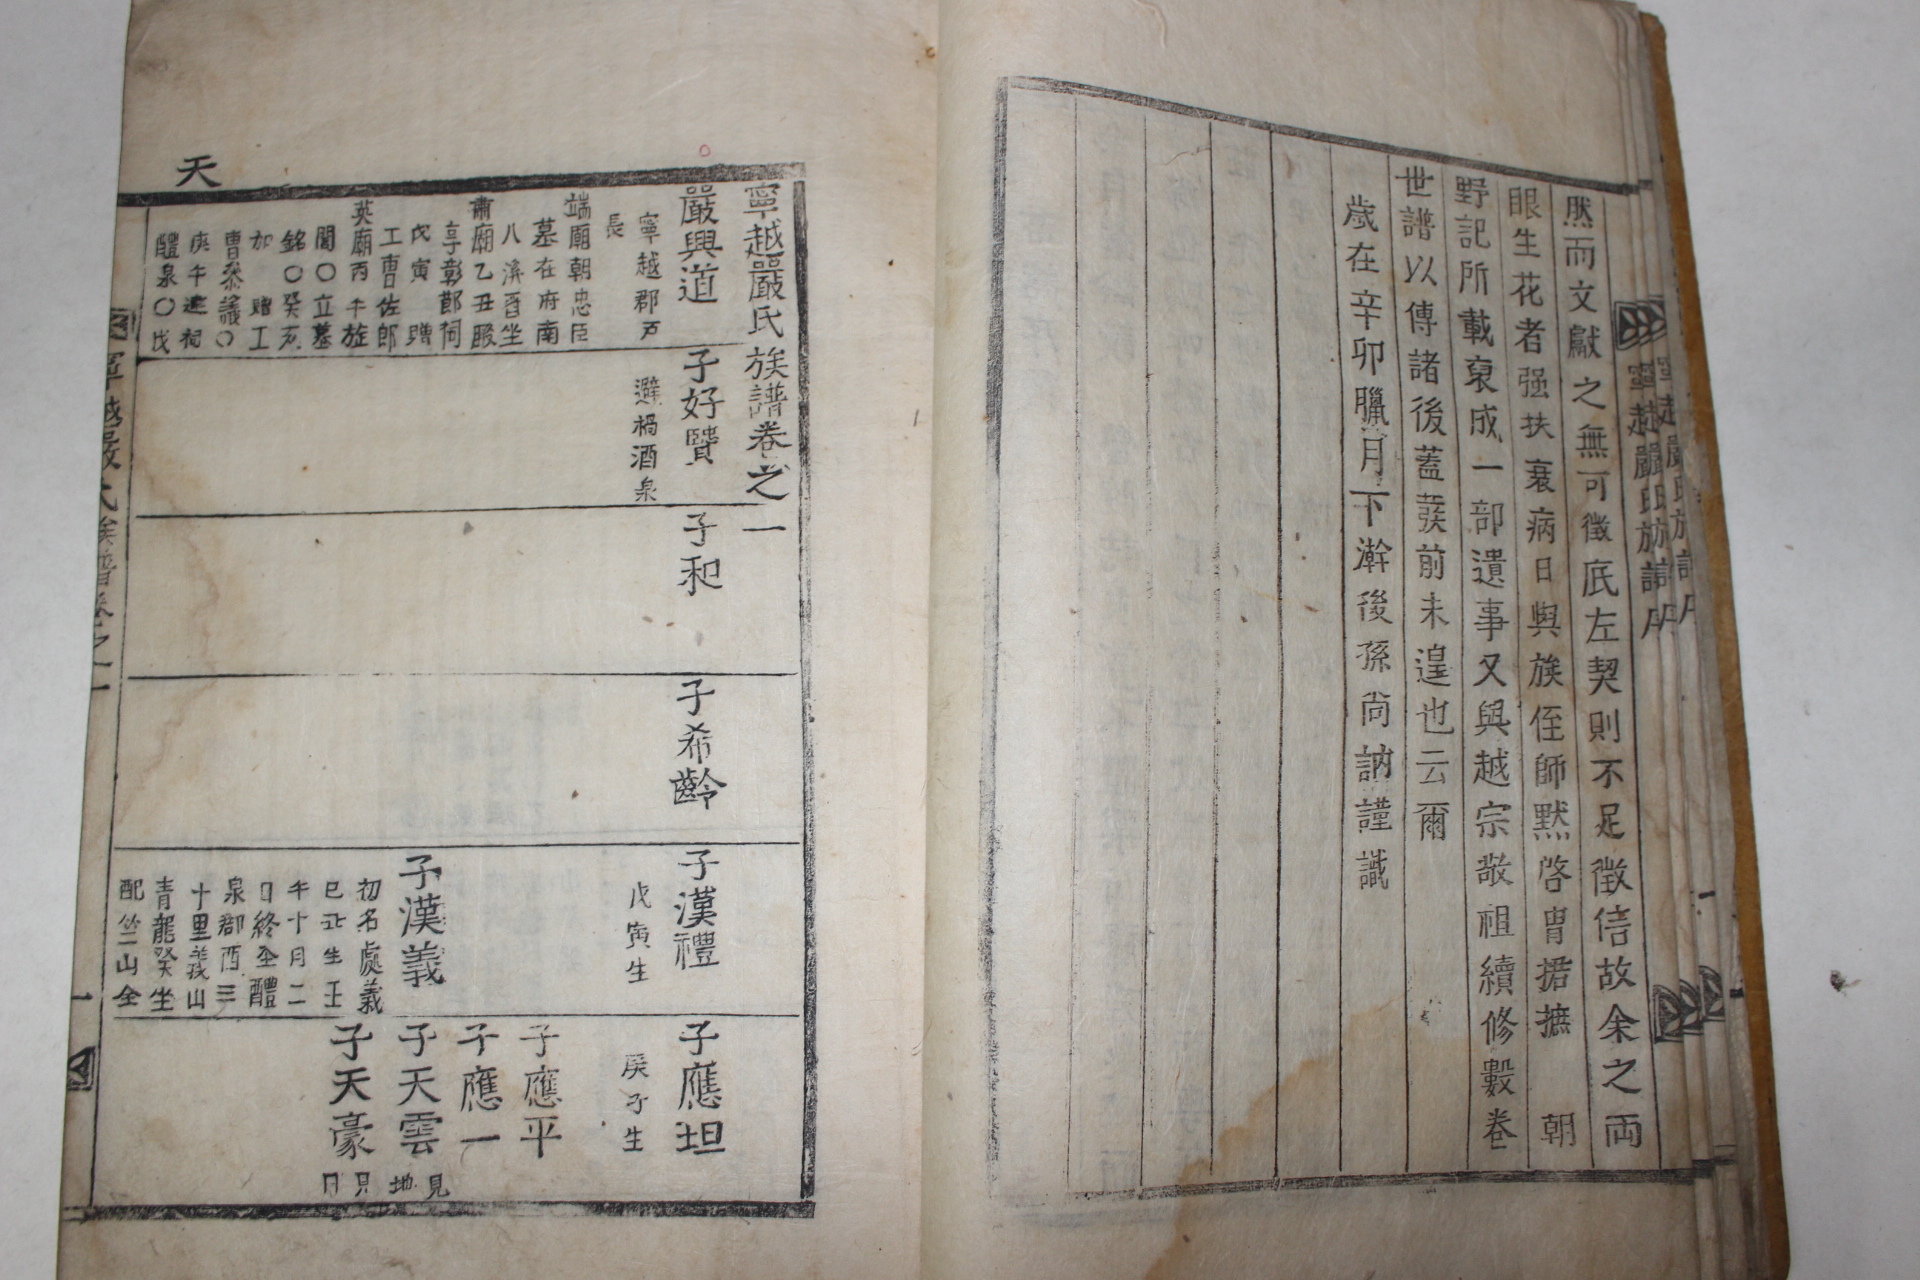 然而文獻之無可徵底左契則不足徵信故余之両
眼生花者强扶衰病日與族侄師黙啓冑掿摭 朝
野記所載裒成一部遺事又與越宗敬祖續修數卷
世譜以傳諸後蓋發前未遑也云爾
歲在辛卯臘月下澣後孫尚訥謹識
寧越嚴氏族譜
天
寧越嚴氏族譜卷之一
嚴興道
寧越郡戸
長
端廟朝忠臣
墓在府南
八溪酉坐
肅廟乙丑腏
享彰節祠
戊寅 贈
工曹佐郎
英廟丙午旌
閭〇立墓
銘〇癸亥
加 贈工
曹叅議〇
庚午建祠
醴泉〇戊
子好賢
避禍酒泉
子和
子希齡
子漢禮
戊寅生
子漢義
初名處義
巳丑生壬
午十月二
日終全醴
泉郡酉三
十里義山
青龍癸坐
配竺山全
子應坦
庚子生
子應平
子應一
子天雲
見地
子天豪
見日
寧越嚴氏族譜卷之一
一